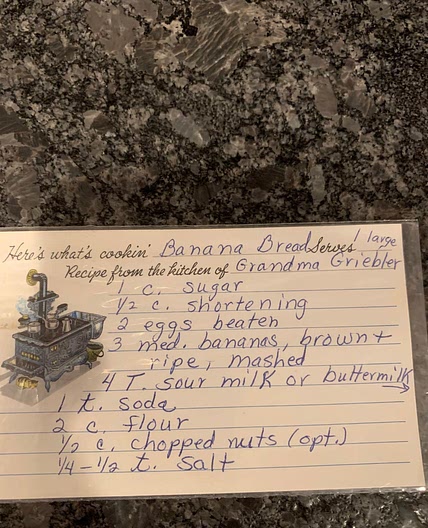 Here's what's cookin' Banana Bread Serves 1 large
Recipe from the kitchen of Grandma Griebler
1 c. sugar
1/2 c. shortening
2 eggs beaten
3 med. bananas, brown +
ripe, mashed
4 T. sour milk or buttermilk →
1 t. soda
2 c. flour
1/2 c. chopped nuts (opt.)
1/4 - 1/2 t. salt